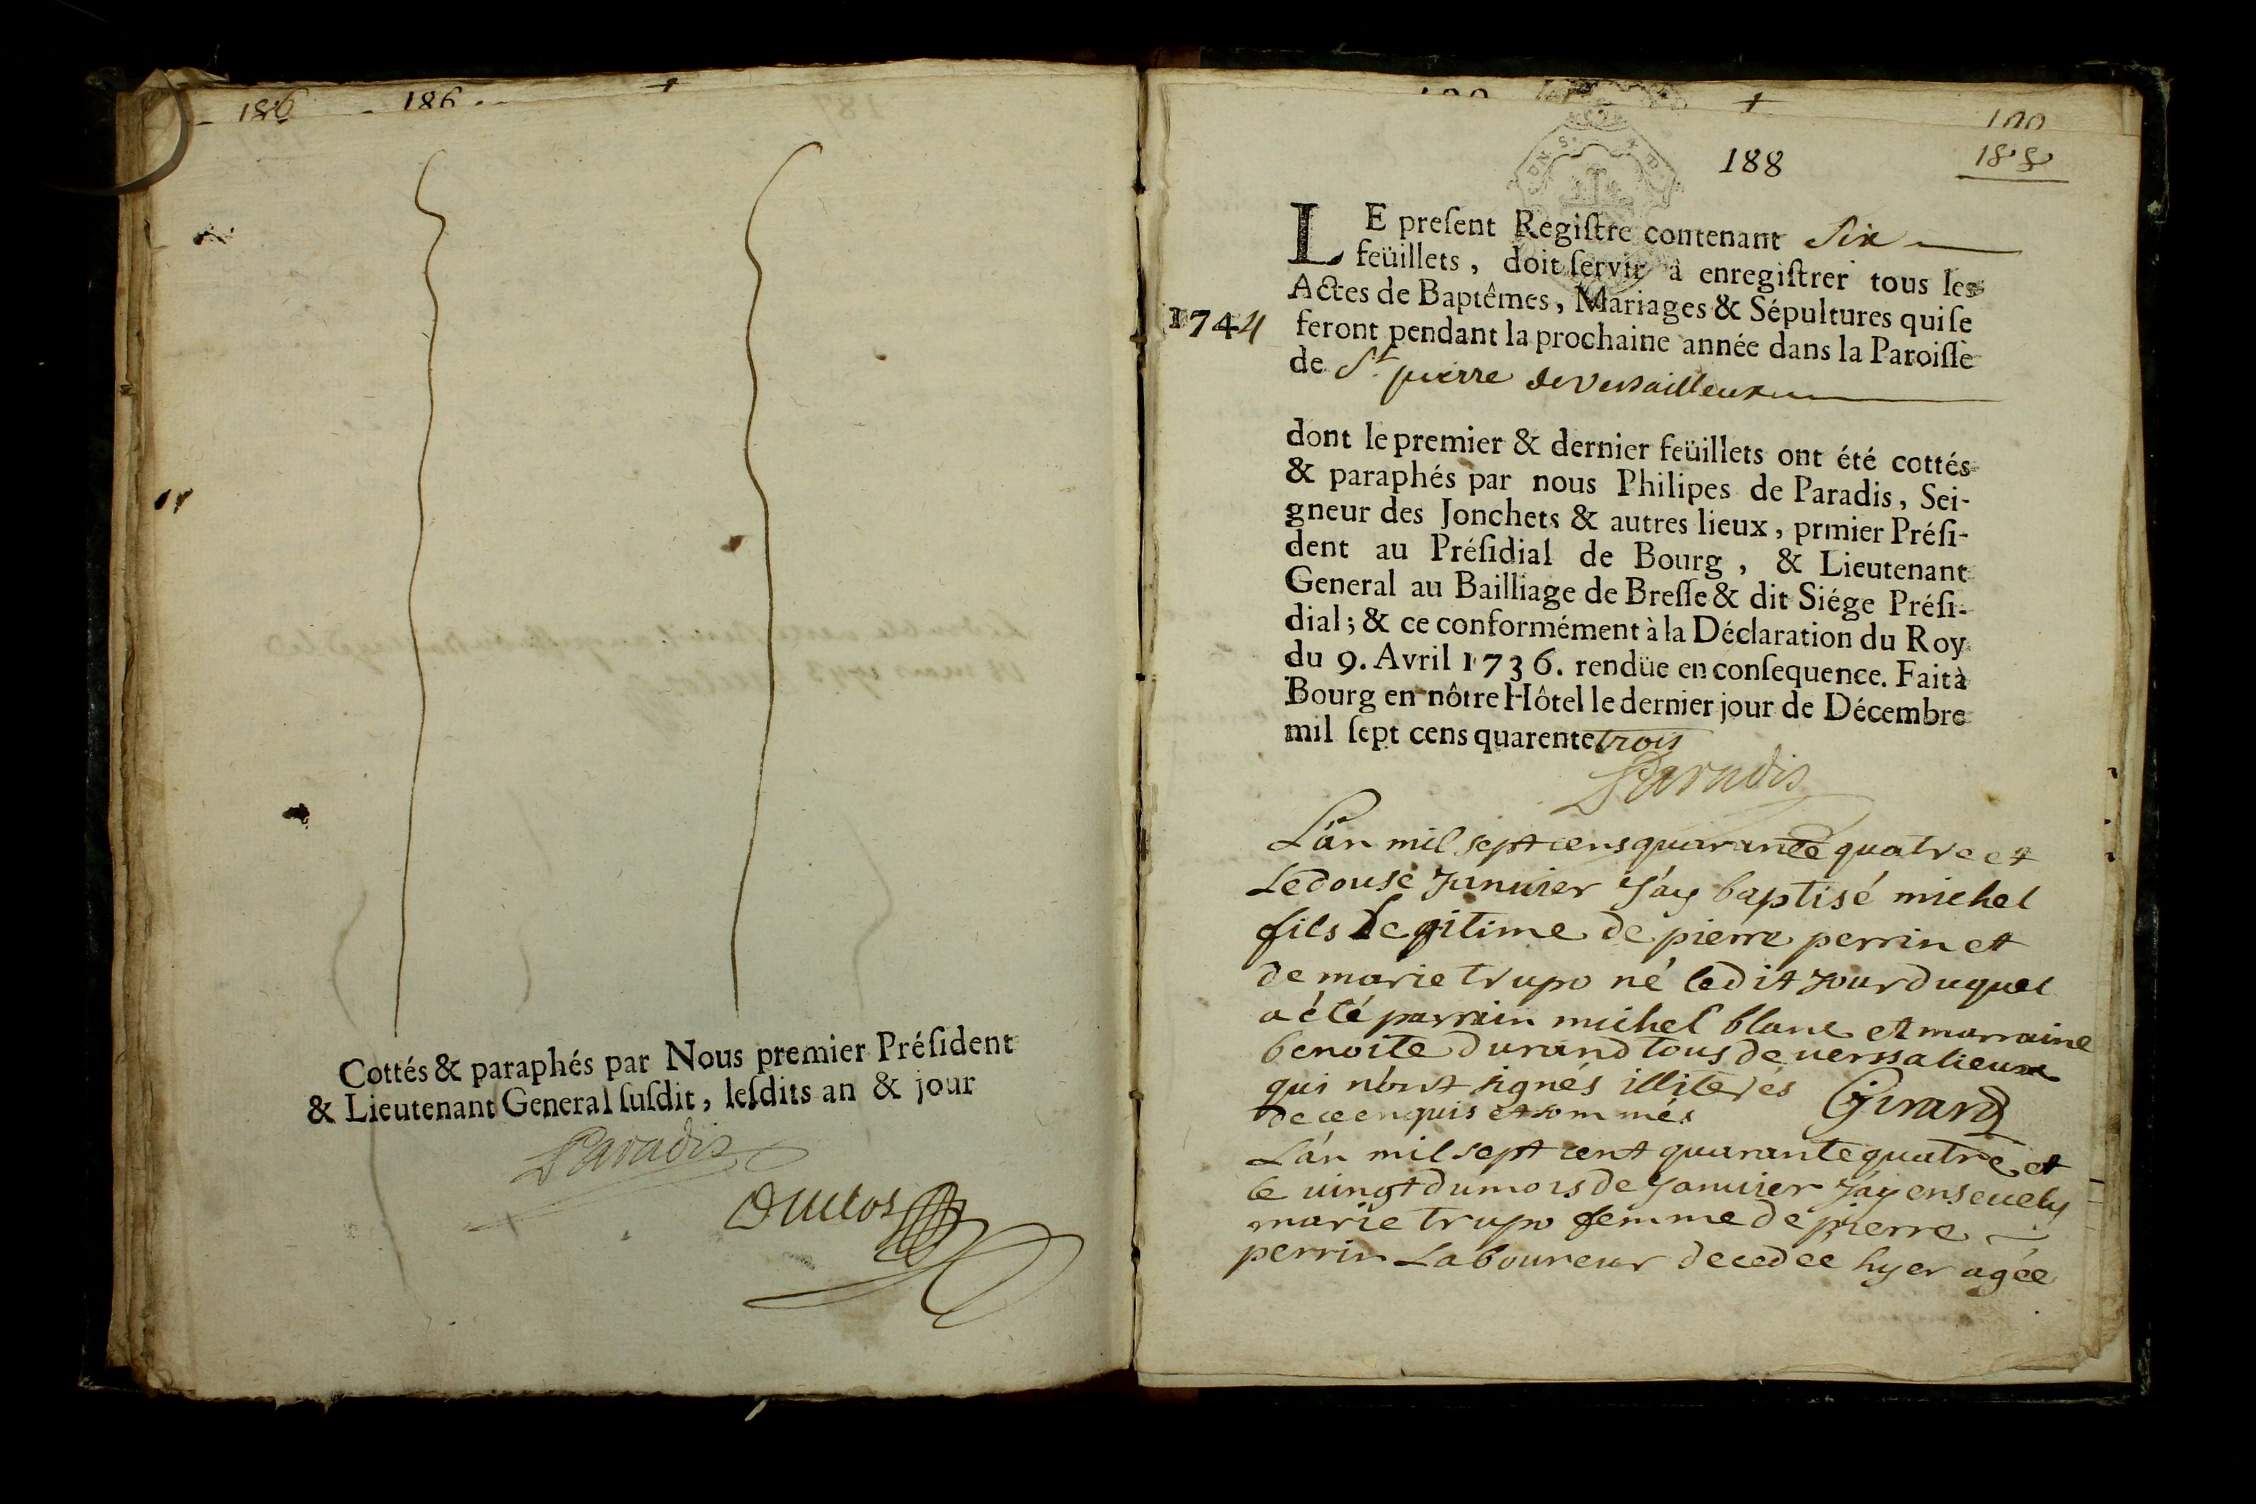 186 186
Cottés & paraphés par Nous premier Préſident
& Lieutenant General ſuſdit, leſdits an & jour
Paradis
Duclos
188
188
LE preſent Regiſtre contenant Six
feüillets, doit ſervir à enregiſtrer tous les
Actes de Baptêmes, Mariages & Sépultures qui ſe
1744
feront pendant la prochaine année dans la Paroiſſe
de St pierre de Versailleux
dont le premier & dernier feüillets ont été cottés
& paraphés par nous Philipes de Paradis, Sei-
gneur des Jonchets & autres lieux, prmier Préſi-
dent au Préſidial de Bourg, & Lieutenant
General au Bailliage de Breſſe & dit Siége Préſi-
dial; & ce conformément à la Déclaration du Roy
du 9. Avril 1736. rendüe en conſequence. Fait à
Bourg en nôtre Hôtel le dernier jour de Décembre
mil ſept cens quarente trois
Paradis
L'an mil sept cens quarante quatre et
Le douse Janvier J'ay baptisé michel
fils Legitime de pierre perrin et
de marie trupo né ledit Jour duquel
a été parrain michel blanc et marraine
benoite durand tous de uerssalieux
qui n'ont signés illiterés Girard
de ce enquis et sommés
L'an mil sept cent quarante quatre et
le uingt du mois de Januier J'ay enseuely
marie trupo femme de pierre
perrin Laboureur decedee hyer agée